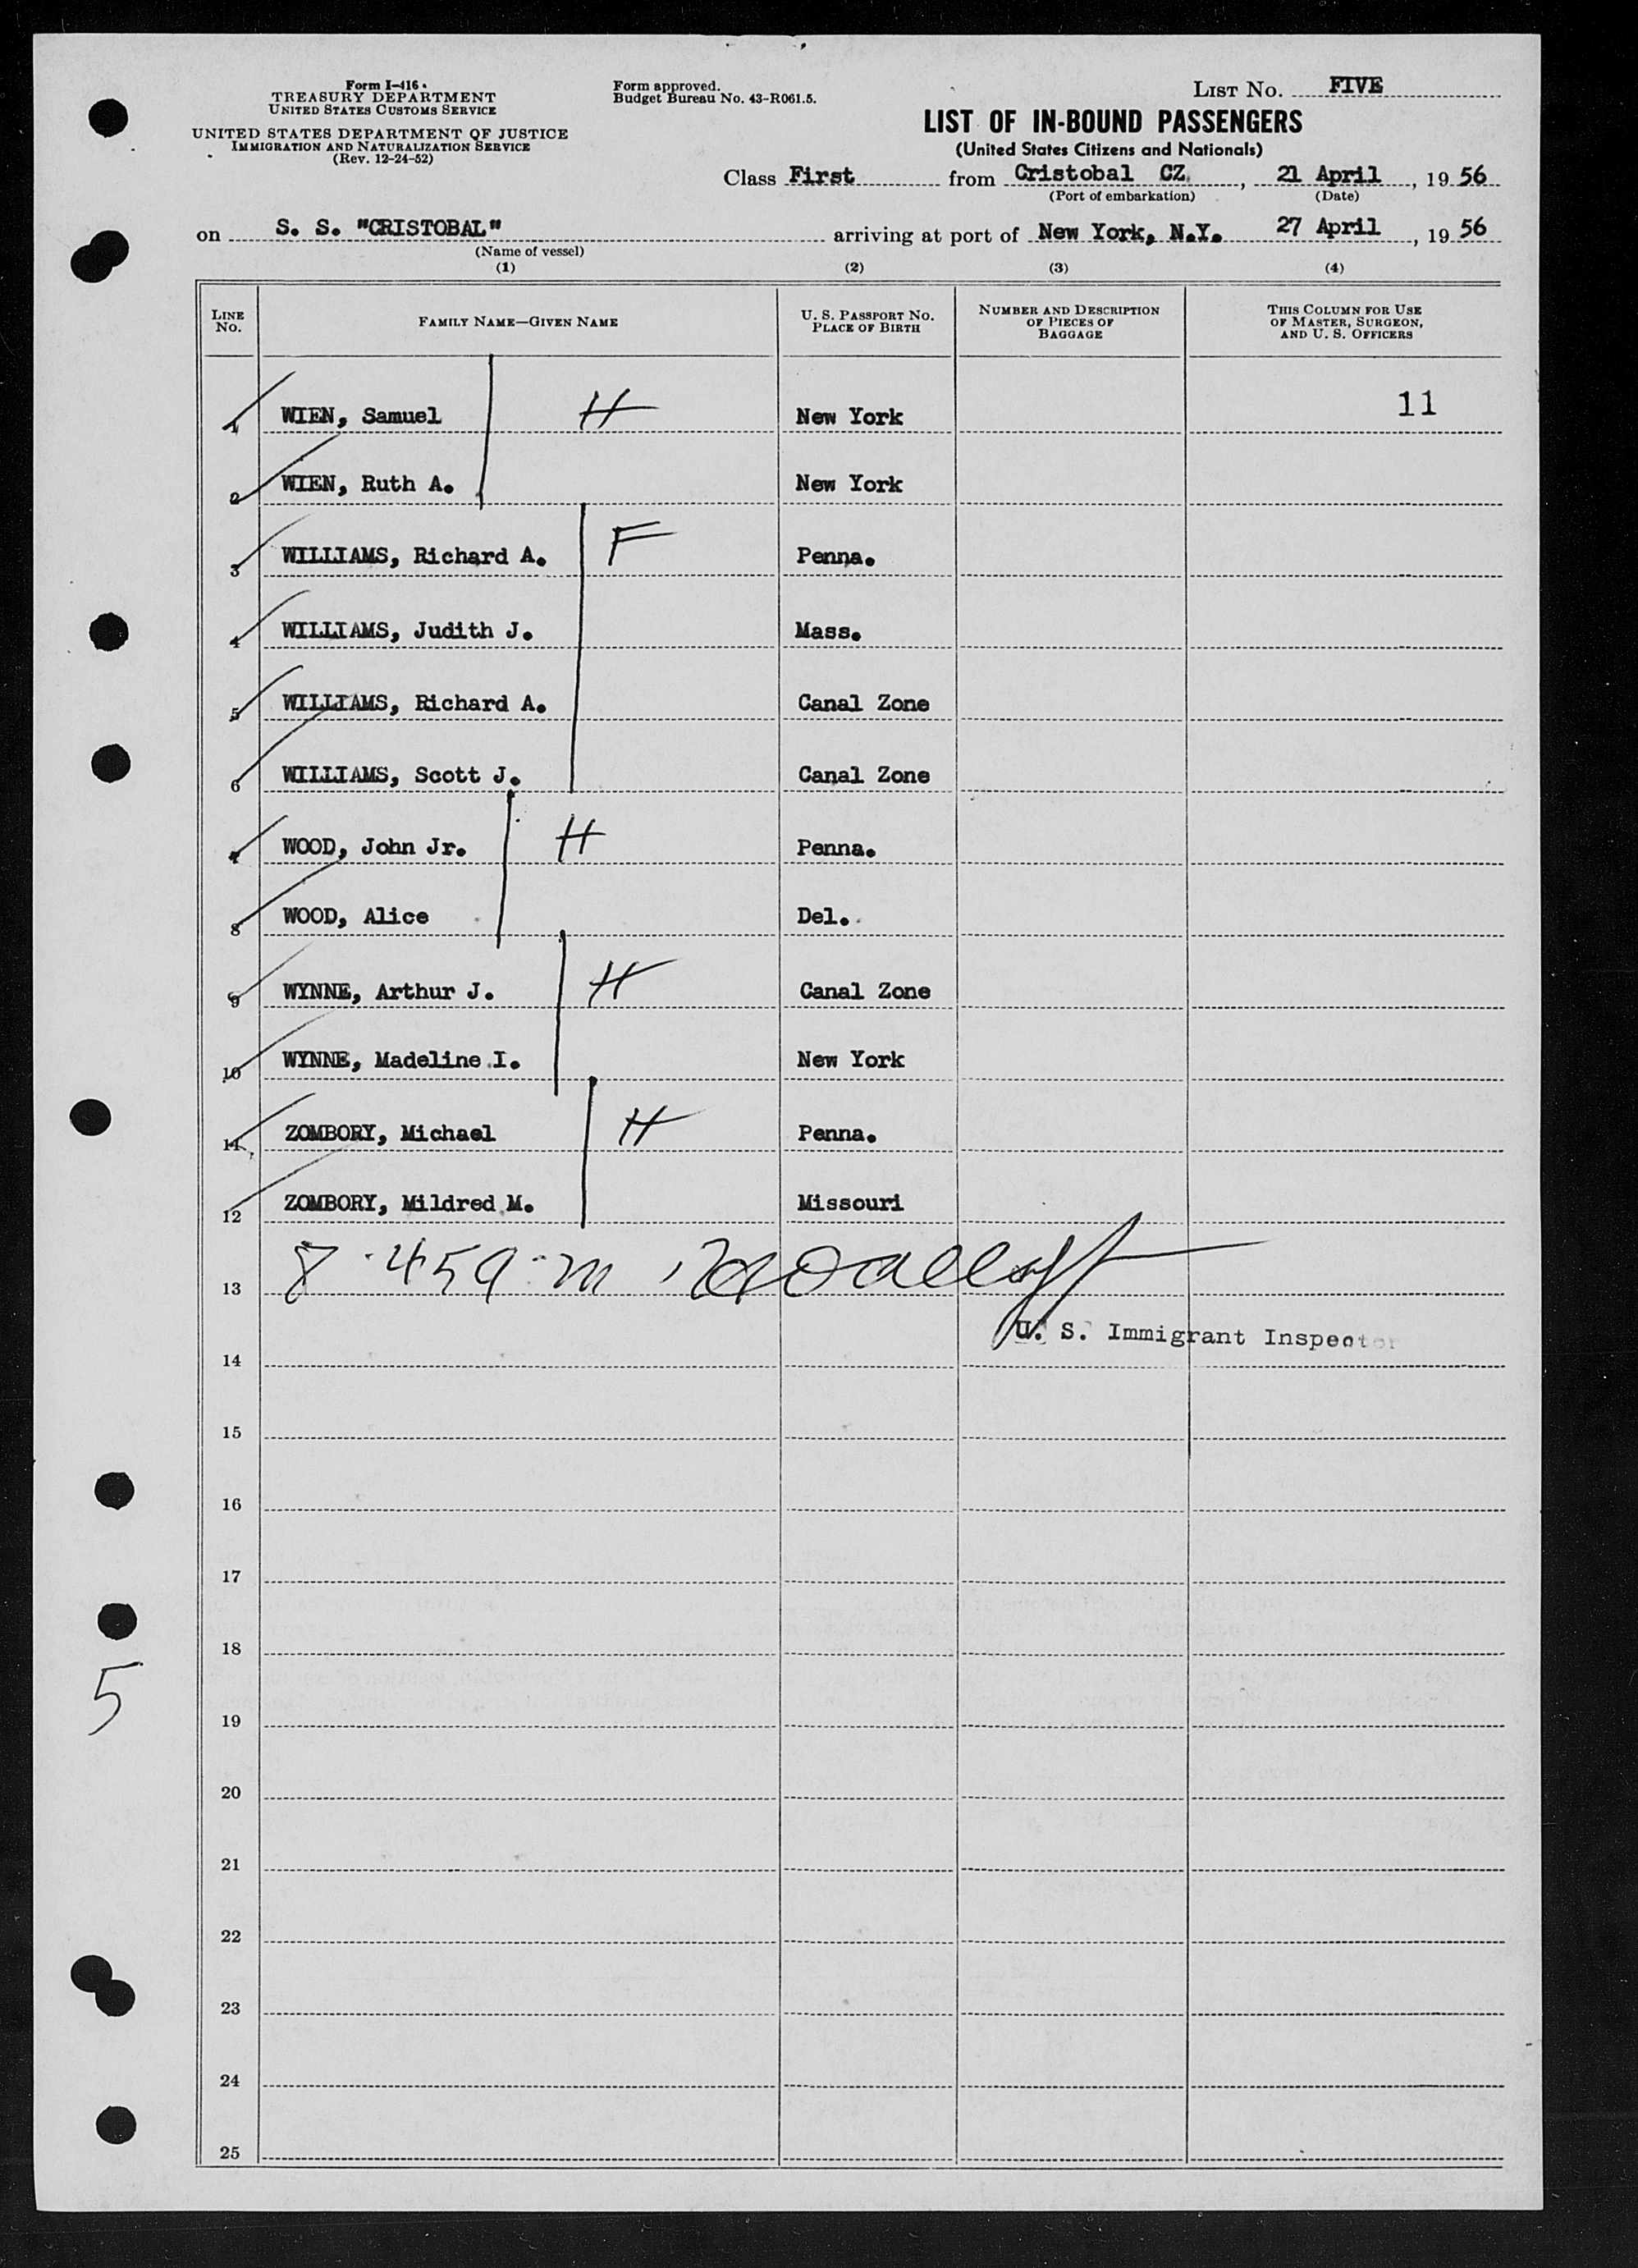 Form I-416
TREASURY DEPARTMENT
UNITED STATES CUSTOMS SERVICE
UNITED STATES DEPARTMENT OF JUSTICE
IMMIGRATION AND NATURALIZATION SERVICE
(Rev. 12-24-52)
Form approved.
Budget Bureau No. 43-R061.5.
LIST No. FIVE
LIST OF IN-BOUND PASSENGERS
(United States Citizens and Nationals)
Class First from Cristobal CZ, 21 April, 1956
(Port of embarkation) (Date)
on S. S. "CRISTOBAL" arriving at port of New York, N.Y. 27 April, 1956
(Name of vessel)
(1) (2) (3) (4)
LINE No. FAMILY NAME—GIVEN NAME U. S. PASSPORT No. PLACE OF BIRTH NUMBER AND DESCRIPTION OF PIECES OF BAGGAGE THIS COLUMN FOR USE OF MASTER, SURGEON, AND U. S. OFFICERS
1 WIEN, Samuel H New York 11
2 WIEN, Ruth A. New York
3 WILLIAMS, Richard A. F Penna.
4 WILLIAMS, Judith J. Mass.
5 WILLIAMS, Richard A. Canal Zone
6 WILLIAMS, Scott J. Canal Zone
7 WOOD, John Jr. H Penna.
8 WOOD, Alice Del.
9 WYNNE, Arthur J. H Canal Zone
10 WYNNE, Madeline I. New York
11 ZOMBORY, Michael H Penna.
12 ZOMBORY, Mildred M. Missouri
13 8.45a.m
U. S. Immigrant Inspector
14
15
16
17
18
5
19
20
21
22
23
24
25